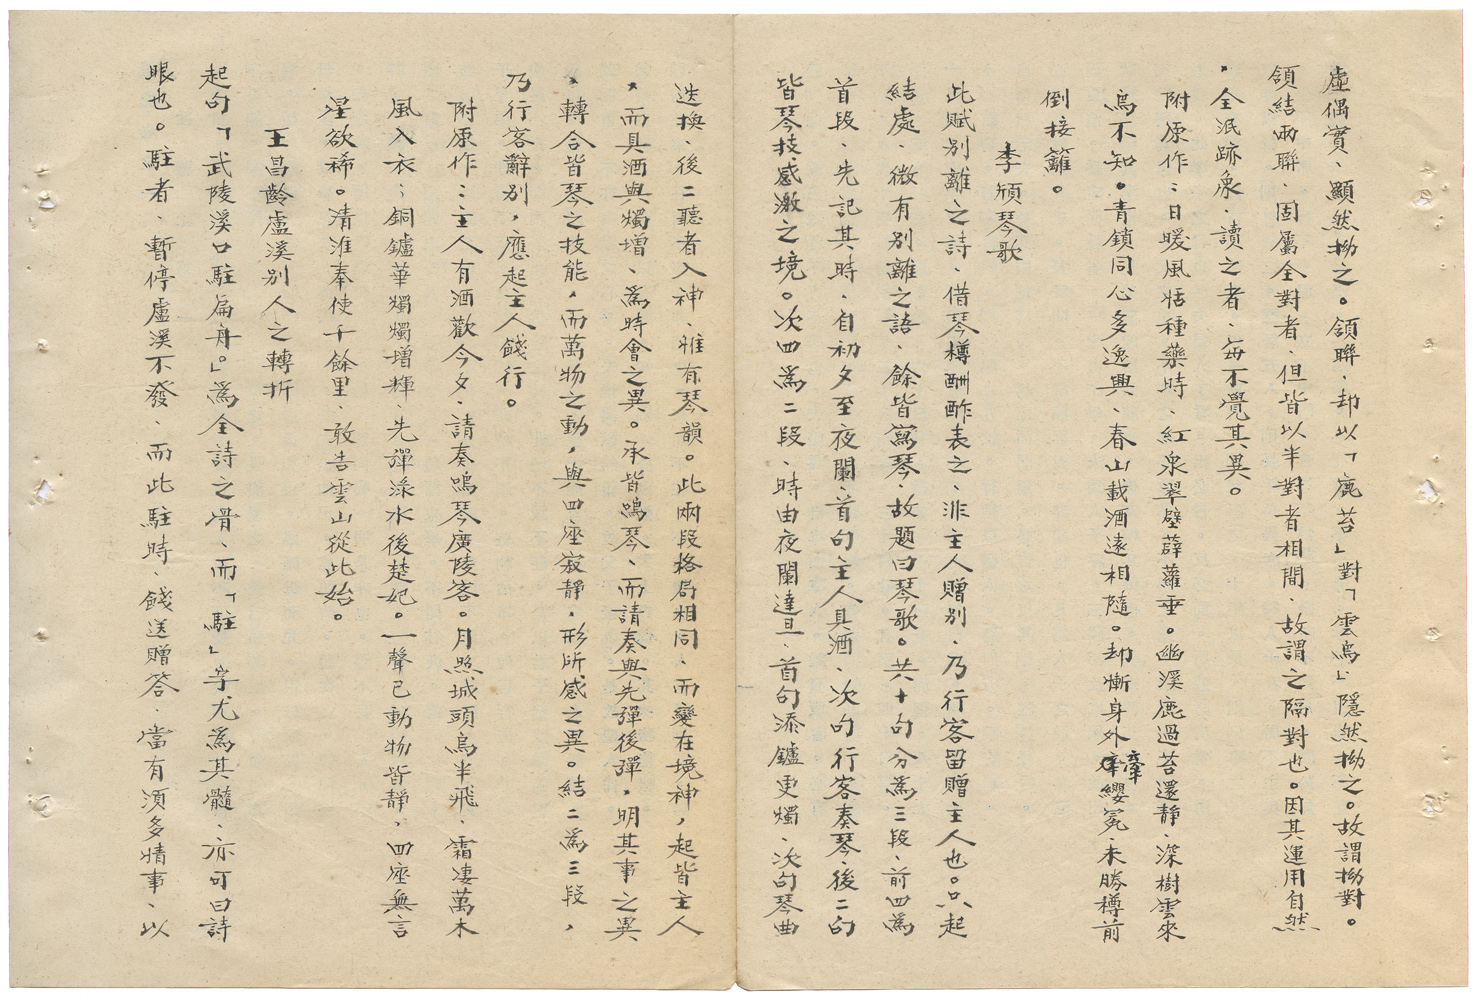 虛偶實、顯然拗之。領聯、却以「鹿苔」對「雲鳥」隱然拗之。故謂拗對。
領結兩聯、固屬全對者、但皆以半對者相間、故謂之隔對也。因其運用自然
，全泯跡象、讀之者、每不覺其異。
附原作：日暖風恬種藥時、紅泉翠壁薜蘿垂。幽溪鹿過苔還靜、深樹雲來
鳥不知。青鎖同心多逸興、春山載酒遠相隨。却慚身外牽纓冕、未勝樽前
倒接䍦。
李頎琴歌
此賦別離之詩、借琴樽酬酢表之、非主人贈別、乃行客留贈主人也。只起
結處、微有別離之語、餘皆寫琴、故題曰琴歌。共十句分為三段、前四為
首段、先記其時、自初夕至夜闌、首句主人具酒、次句行客奏琴、後二句
皆琴技感激之境。次四為二段、時由夜闌達旦、首句添鑪更燭、次句琴曲
迭換、後二聽者入神、惟有琴韻。此兩段格局相同、而變在境神，起皆主人
，而具酒與燭增、為時會之異。承皆鳴琴、而請奏與先彈後彈，明其事之異
，轉合皆琴之技能，而萬物之動，與四座寂靜，形所感之異。結二為三段，
乃行客辭別，應起主人餞行。
附原作：主人有酒歡今夕、請奏鳴琴廣陵客。月照城頭烏半飛、霜凄萬木
風入衣；銅鑪華燭燭增輝、先彈淥水後楚妃。一聲已動物皆靜、四座無言
星欲稀。清淮奉使千餘里、敢告雲山從此始。
王昌齡盧溪別人之轉折
起句「武陵溪口駐扁舟。」為全詩之骨、而「駐」字尤為其髓、亦可曰詩
眼也。駐者、暫停盧溪不發、而此駐時、餞送贈答、當有須多情事、以